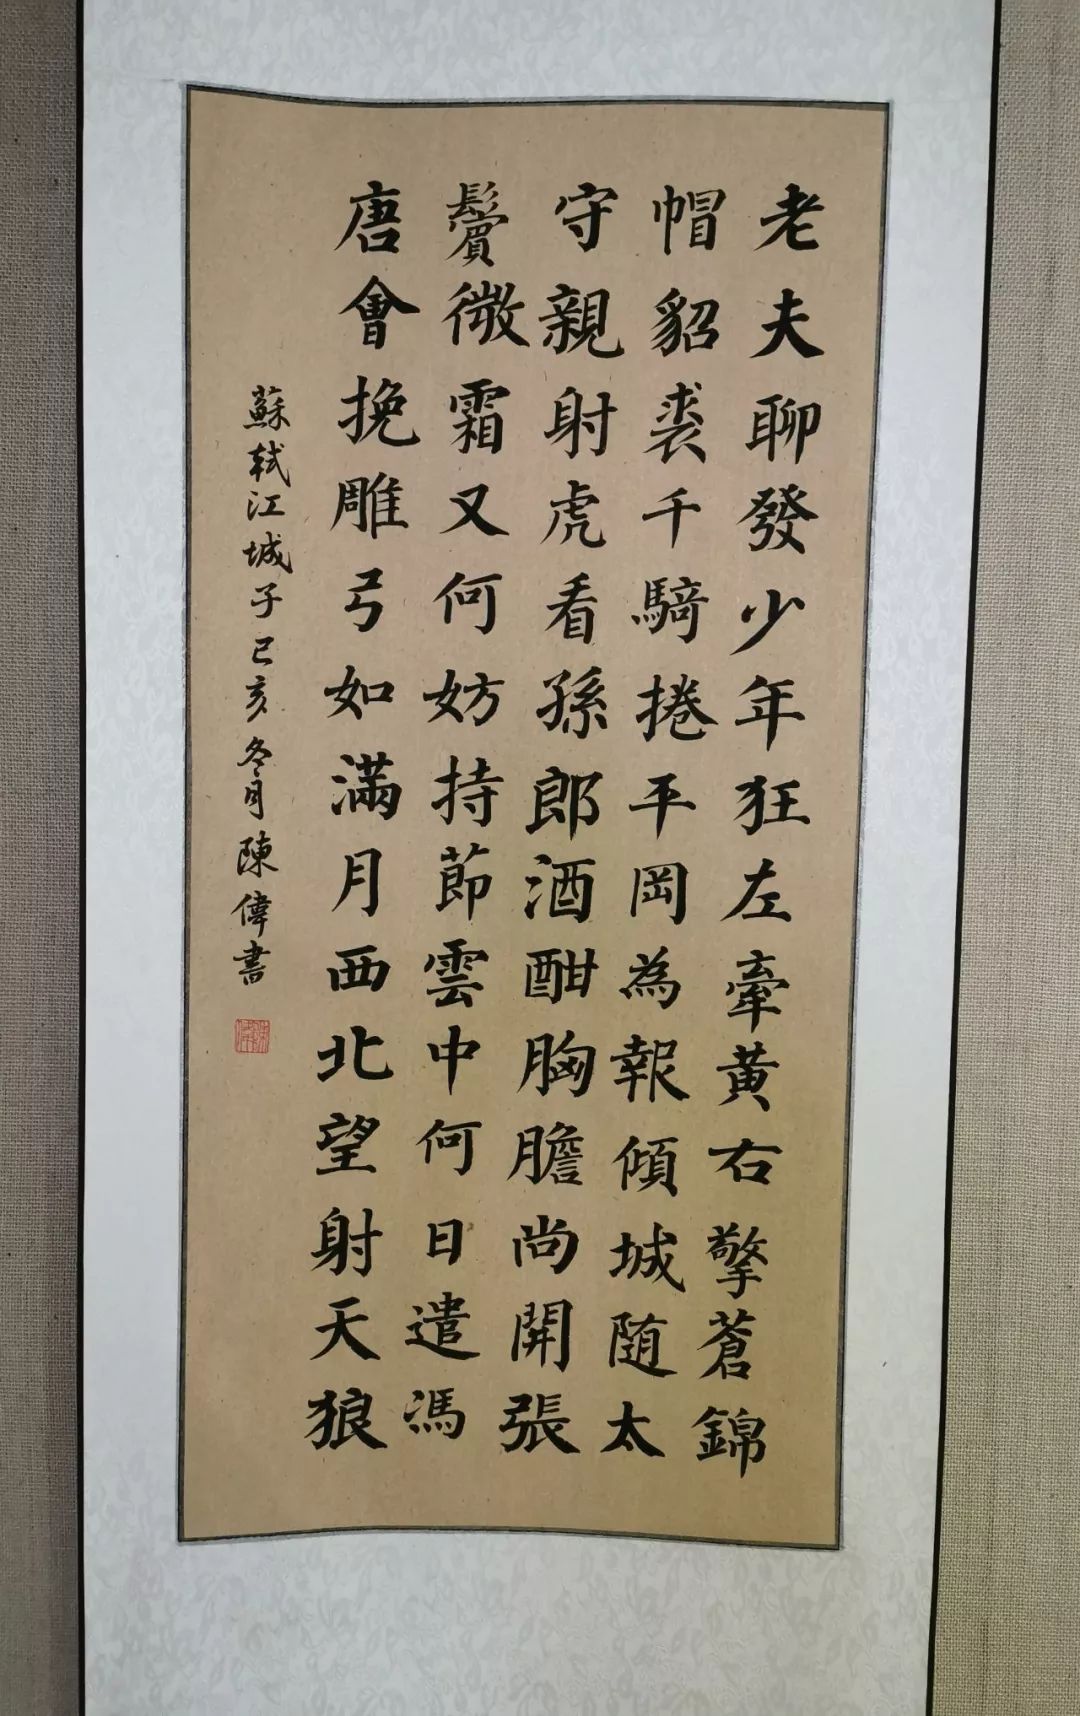 老夫聊發少年狂左牽黃右擎蒼錦
帽貂裘千騎捲平岡為報傾城随太
守親射虎看孫郎酒酣胸膽尚開張
鬢微霜又何妨持節雲中何日遣馮
唐會挽雕弓如滿月西北望射天狼
蘇軾江城子己亥冬月陳偉書